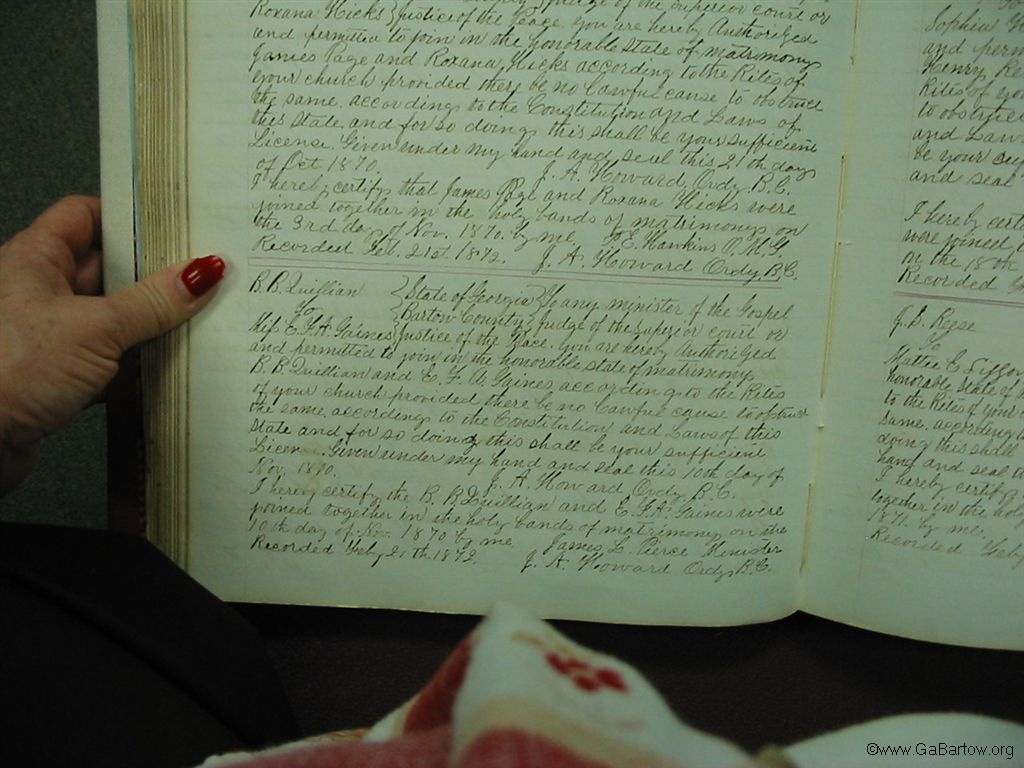 Roxana Hicks } Justice of the Peace. You are hereby Authorized
and permitted to join in the honorable State of matrimony
James Page and Roxana Hicks according to the Rites of
your church provided there be no Lawful cause to obstruct
the same. according to the Constitution and Laws of
this State. and for so doing this shall be your sufficient
License. Given under my hand and seal this 21th day
of Oct 1870. J. A. Howard, Ordy. B.C.
I hereby certify that James Page and Roxana Hicks were
joined together in the holy bands of matrimony on
the 3rd day of Nov. 1870. by me, F. E. Hawkins O. M. G.
Recorded Feb. 21st 1872. J. A. Howard Ordy B.C.
B. B. Quillian } State of Georgia } To any minister of the Gospel
To } Bartow County } Judge of the Superior court or
Miss E. F. A. Gaines } Justice of the Peace. You are hereby Authorized
and permitted to join in the honorable state of matrimony
B. B. Quillian and E. F. A. Gaines according to the Rites
of your church provided there be no Lawful cause to obstruct
the same, according to the Constitution and Laws of this
State and for so doing this shall be your sufficient
Licen Given under my hand and seal this 10th day of
Nov. 1870. J. A. Howard Ordy B.C.
I hereby certify the B. B. Quillian and E. F. A. Gaines were
joined together in the holy bands of matrimony on the
10th day of Nov. 1870 by me. James L. Pierce Minister
Recorded Feby 21th 1872. J. A. Howard Ordy, B.C.
Sophia
and perm
Henry
Rites of you
to obstruct
and Laws
be your suf
and seal
I hereby cert
were joined
on the 18th
Recorded
J. B. Reese
To
Mattie E
honorable state of
to the Rites of your
same, according
doing this shall
hand and seal
I hereby certify
together in the holy
1871. by me.
Recorded Feby
©www.GaBartow.org